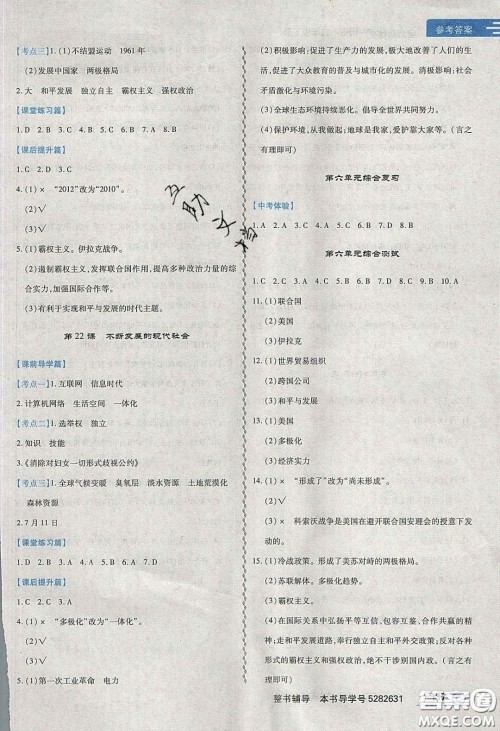 参考答案
【考点三】1.(1)不结盟运动 1961年
(2)发展中国家 两极格局
2.大 和平发展 独立自主 霸权主义 强权政治
【课堂练习篇】
1.D 2.B 3.D 4.B 5.C 6.C 7.B
【课后提升篇】
1.D 2.A 3.A
4.(1)× “2012”改为“2010”。
(2)√
(3)√
5.(1)霸权主义。伊拉克战争。
(2)遏制霸权主义,发挥联合国作用,提高多种政治力量的综合实力,加强国际合作等。
(3)有利于实现和平与发展的时代主题。
第22课 不断发展的现代社会
【课前导学篇】
【考点一】1.互联网 信息时代
2.计算机网络 生活空间 一体化
【考点二】1.选举权 独立
2.知识 技能
3.《消除对妇女一切形式歧视公约》
【考点三】1.全球气候变暖 臭氧层 大气资源 土地荒漠化
森林资源
2.7月11日
【课堂练习篇】
1.D 2.A 3.C 4.D 5.B 6.B 7.A
【课后提升篇】
1.C 2.C 3.A
4.(1)× “多极化”改为“一体化”。
(2)√
(3)√
5.(1)第一次工业革命 电力
(2)积极影响:促进了生产力的发展,极大地改善了人们的生
活,促进了大众教育的普及与城市化的发展。消极影响:社
会矛盾激化与环境污染。
(3)全球生态环境持续恶化。倡导全世界共同努力。
(4)保护环境,从我做起;地球是我家,爱护靠大家。(言之
有理即可)
第六单元综合复习
【中考体验】
1.A 2.B 3.A 4.D 5.C 6.D 7.A 8.D
第六单元综合测试
1.C 2.C 3.B 4.A 5.B 6.B 7.C 8.B 9.D 10.A
11.(1)联合国
(2)美国
(3)伊拉克
12.(1)世界贸易组织
(2)跨国公司
(3)和平与发展
13.(1)美国
(2)多极化
(3)经济实力
14.(1)× “形成了”改为“尚未形成”。
(2)√
(3)× 科索沃战争是美国在避开联合国安理会的情况下
发动的。
(4)√
15.(1)冷战政策。形成了美苏对峙的两极格局。
(2)苏联解体。多极化趋势。
(3)霸权主义。
(4)在国际关系中弘扬平等互信、包容互鉴、合作共赢的精
神,走和平发展道路,奉行独立自主和平外交政策,反对各
种形式的霸权主义和强权政治。(言之有理即可)
整书辅导 本书导学号5282631
互助文档
答案圈
MXQE.COM